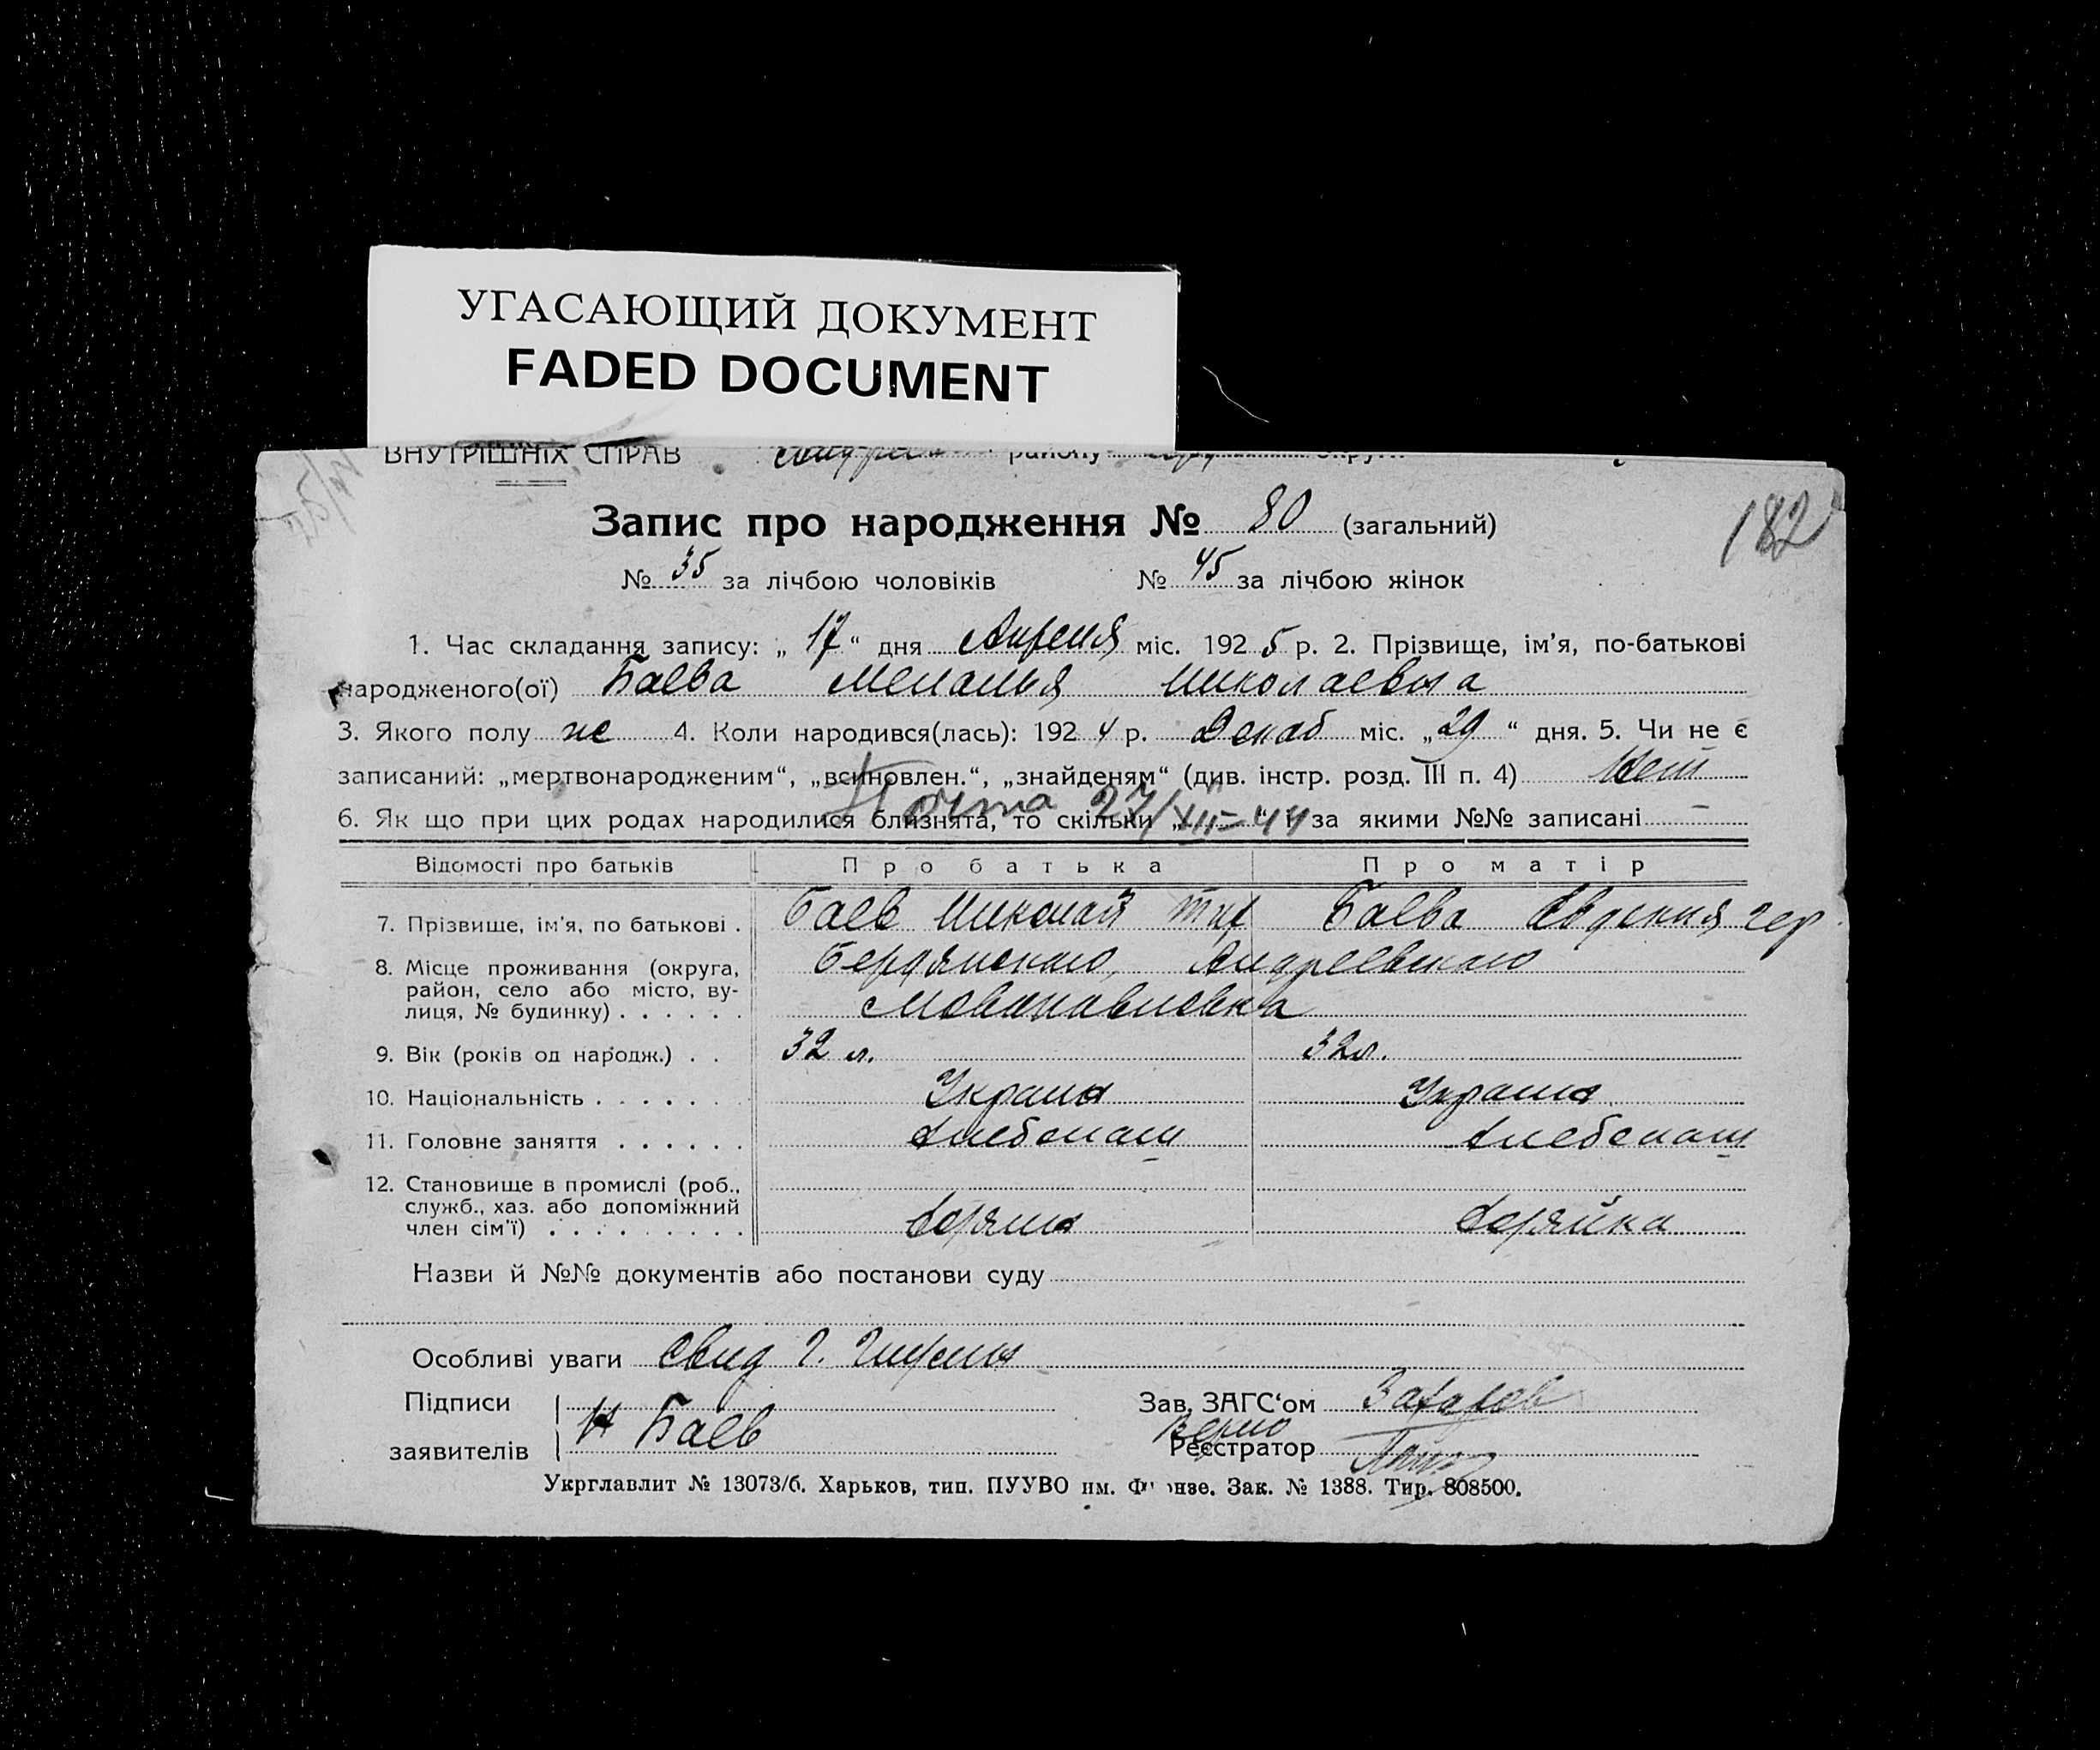 УГАСАЮЩИЙ ДОКУМЕНТ
FADED DOCUMENT
ВНУТРІШНІХ СПРАВ району
Запис про народження № 80 (загальний)
182
№ 35 за лічбою чоловіків № 45 за лічбою жінок
1. Час складання запису: „ 17 “ дня Апреля міс. 192 5 р. 2. Прізвище, ім’я, по-батькові
народженого(ої) Баева Меланья Николаевна
3. Якого полу же 4. Коли народився(лась): 192 4 р. Декаб міс. „ 29 “ дня. 5. Чи не є
записаний: „мертвонародженим“, „всиновлен.“, „знайденям“ (див. інстр. розд. III п. 4) Нет
6. Як що при цих родах народилися близнята, то скільки „ “ за якими №№ записані –
27/XII–44
Відомості про батьків Про батька Про матір
7. Прізвище, ім’я, по батькові . Баев Николай Баева Евдокия
8. Місце проживання (округа, Бердянского, Андреевского
район, село або місто, ву-
лиця, № будинку) . . . . . .
9. Вік (років од народж.) . . 32 л. 32 л.
10. Національність . . . . . . Украин Украин
11. Головне заняття . . . . . . хлебопаш хлебопаш
12. Становище в промислі (роб.,
служб., хаз. або допоміжний
член сім’ї) . . . . . . . . . хозяин хозяйка
Назви й №№ документів або постанови суду
Особливі уваги Свид
Підписи Зав. ЗАГС‘ом Захаров
Н Баев Верно
заявителів Реєстратор
Укрглавлит № 13073/б. Харьков, тип. ПУУВО им. Фрунзе. Зак. № 1388. Тир. 808500.